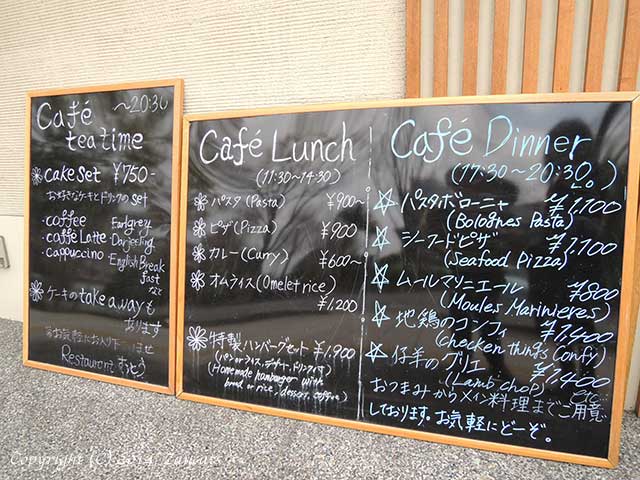 Café ~20:30
tea time
cake set ¥750-
お好きなケーキとドリンクのset
・coffee Earlgrey
・caffe Latte・Darjeeling
・cappuccino・English Break
fast
etc
ケーキのtake awayも
あります
お気軽にお立ち下さいませ
Restaurant
Café Lunch
(11:30~14:30)
パスタ(Pasta) ¥900~
ピザ(Pizza) ¥900
カレー(Curry) ¥600~
オムライス(Omelet rice)
¥1,200
特製ハンバーグセット ¥1,900
(パンorライス、デザート、ドリンク付)
(Homemade hanbarger with
bread or rice, dessert, coffee)
Café Dinner
(17:30~20:30)
L.o.
パスタボローニャ ¥1,100
(Bolognes Pasta)
シーフードピザ ¥1,100
(Seafood Pizza)
ムールマリニエール ¥800
(Moules Marinieres)
地鶏のコンフィ ¥1,400
(checken things Confy)
仔羊のグリエ ¥1,400
(Lamb chop) etc...
おつまみからメイン料理までご用意
しております。お気軽にどーぞ。
Copyright (C) 2014